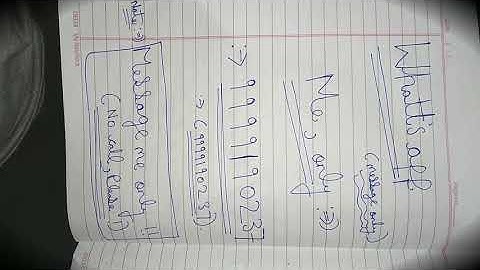 What'sapp
(message only)
Me, only :→)
:→ 9999190237
:→ (9999190237)
Note :→) Message me only !!
(No call, Please !)